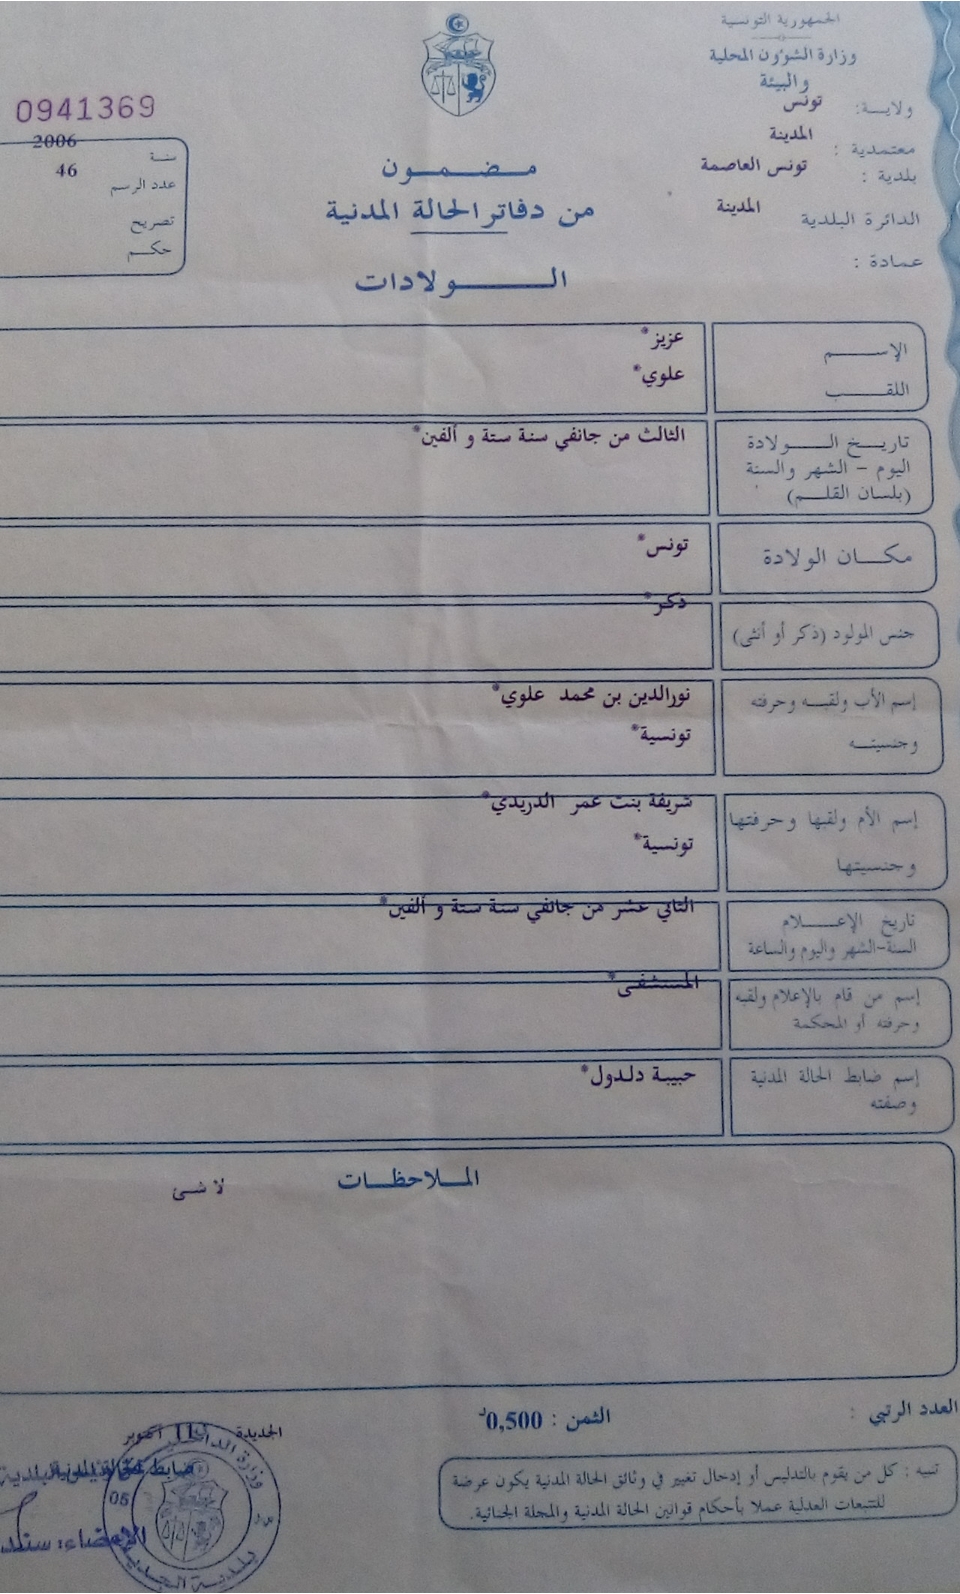 الجمهورية التونسية
وزارة الشؤون المحلية
والبيئة
ولاية: تونس
معتمدية : المدينة
بلدية : تونس العاصمة
الدائرة البلدية المدينة
عمادة :
0941369
سنة 2006
عدد الرسم 46
تصريح
حكم
مضمون
من دفاتر الحالة المدنية
الولادات
الإسم عزيز*
اللقب علوي*
تاريخ الولادة الثالث من جانفي سنة ستة و ألفين*
اليوم - الشهر والسنة
(بلسان القلم)
مكان الولادة تونس*
جنس المولود (ذكر أو أنثى) ذكر*
إسم الأب ولقبه وحرفته نورالدين بن محمد علوي*
وجنسيته تونسية*
إسم الأم ولقبها وحرفتها شريفة بنت عمر الدريدي*
وجنسيتها تونسية*
تاريخ الإعلام الثاني عشر من جانفي سنة ستة و ألفين*
السنة-الشهر واليوم والساعة
إسم من قام بالإعلام ولقبه المستشفى*
وحرفته أو المحكمة
إسم ضابط الحالة المدنية حبيبة دلدول*
وصفته
الملاحظات
لا شئ
العدد الرتبي :
الثمن : 0,500د
تنبيه : كل من يقوم بالتدليس أو إدخال تغيير في وثائق الحالة المدنية يكون عرضة
للتتبعات العدلية عملا بأحكام قوانين الحالة المدنية والمجلة الجنائية.
الجديدة 11 أكتوبر
ضابط الحالة المدنية
05
الإمضاء: سند
وزارة الداخلية
بلدية الجديدة